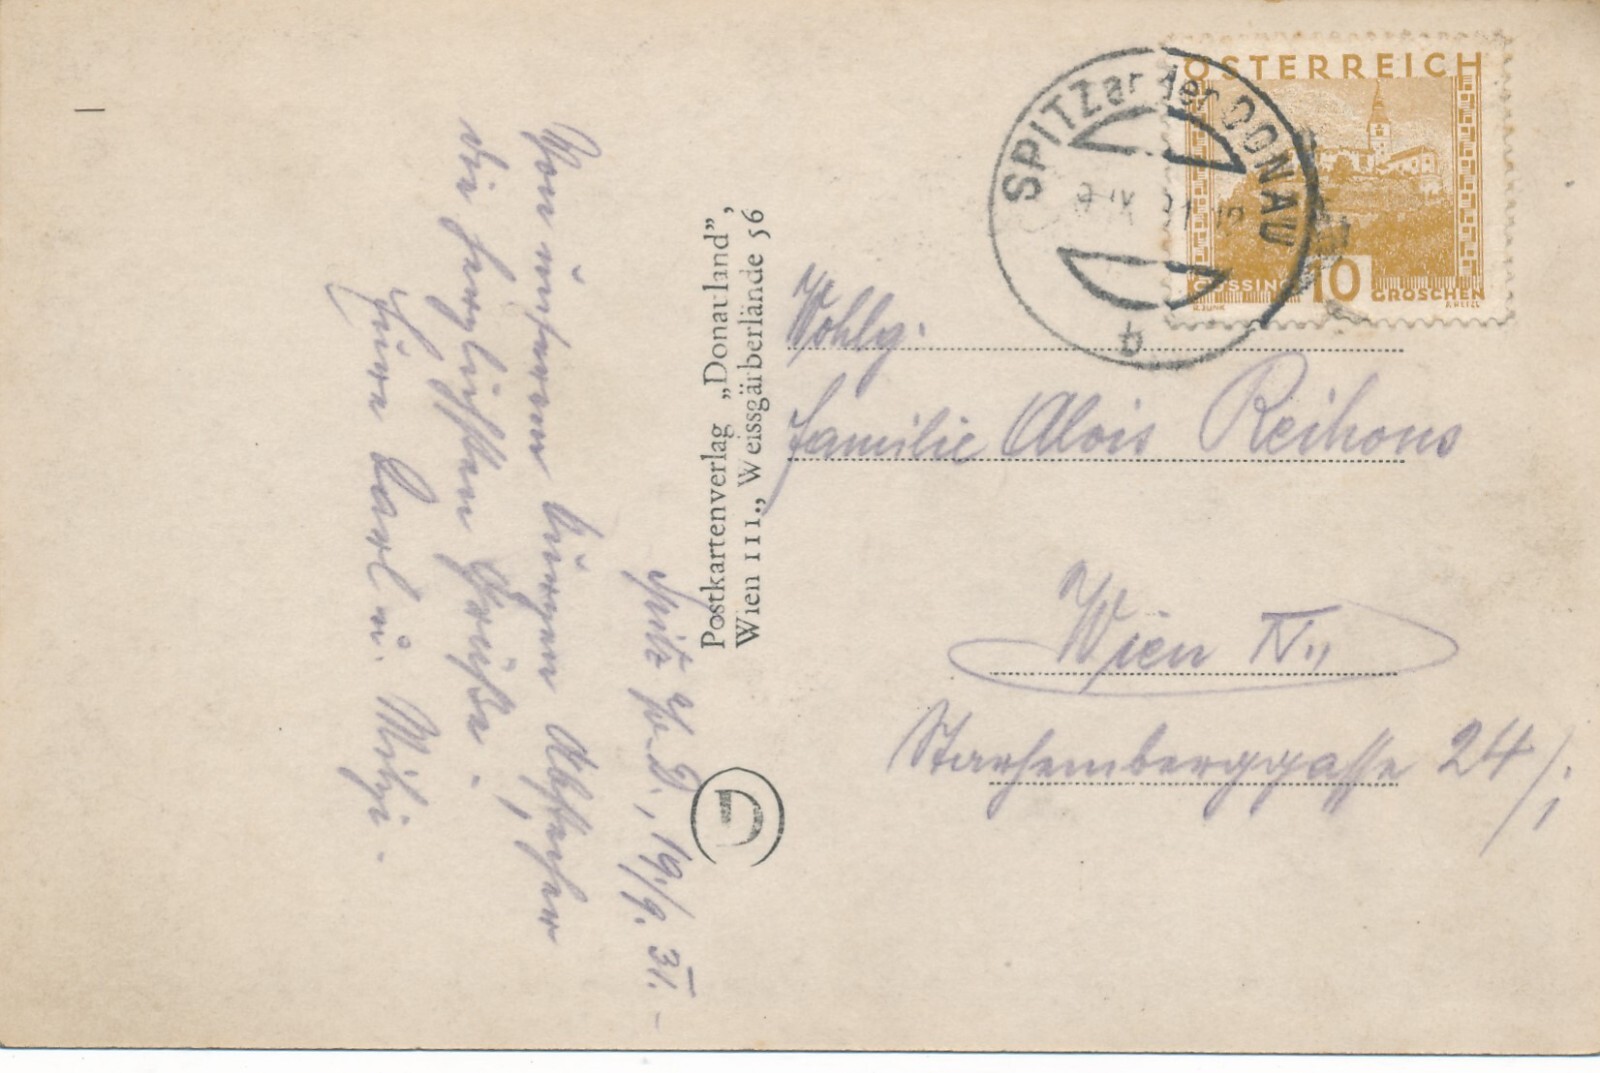 Spitz a/d D., 19./9. 31. –
Von unserem kurzen Abstecher
die herzlichsten Grüße.
Eure Karl u. Mitzi.
Postkartenverlag „Donauland”,
Wien III., Weissgärberlände 56
SPITZ an der DONAU
b
ÖSTERREICH
GÜSSING
10
GROSCHEN
Wohlg.
Familie Alois Reihons
Wien IV.,
Starhemberggasse 24/I